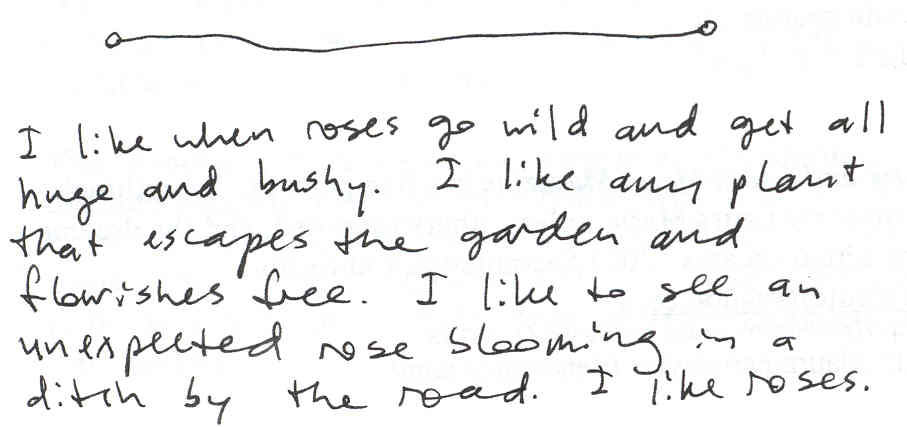 I like when roses go wild and get all
huge and bushy. I like any plant
that escapes the garden and
flourishes free. I like to see an
unexpected rose blooming in a
ditch by the road. I like roses.